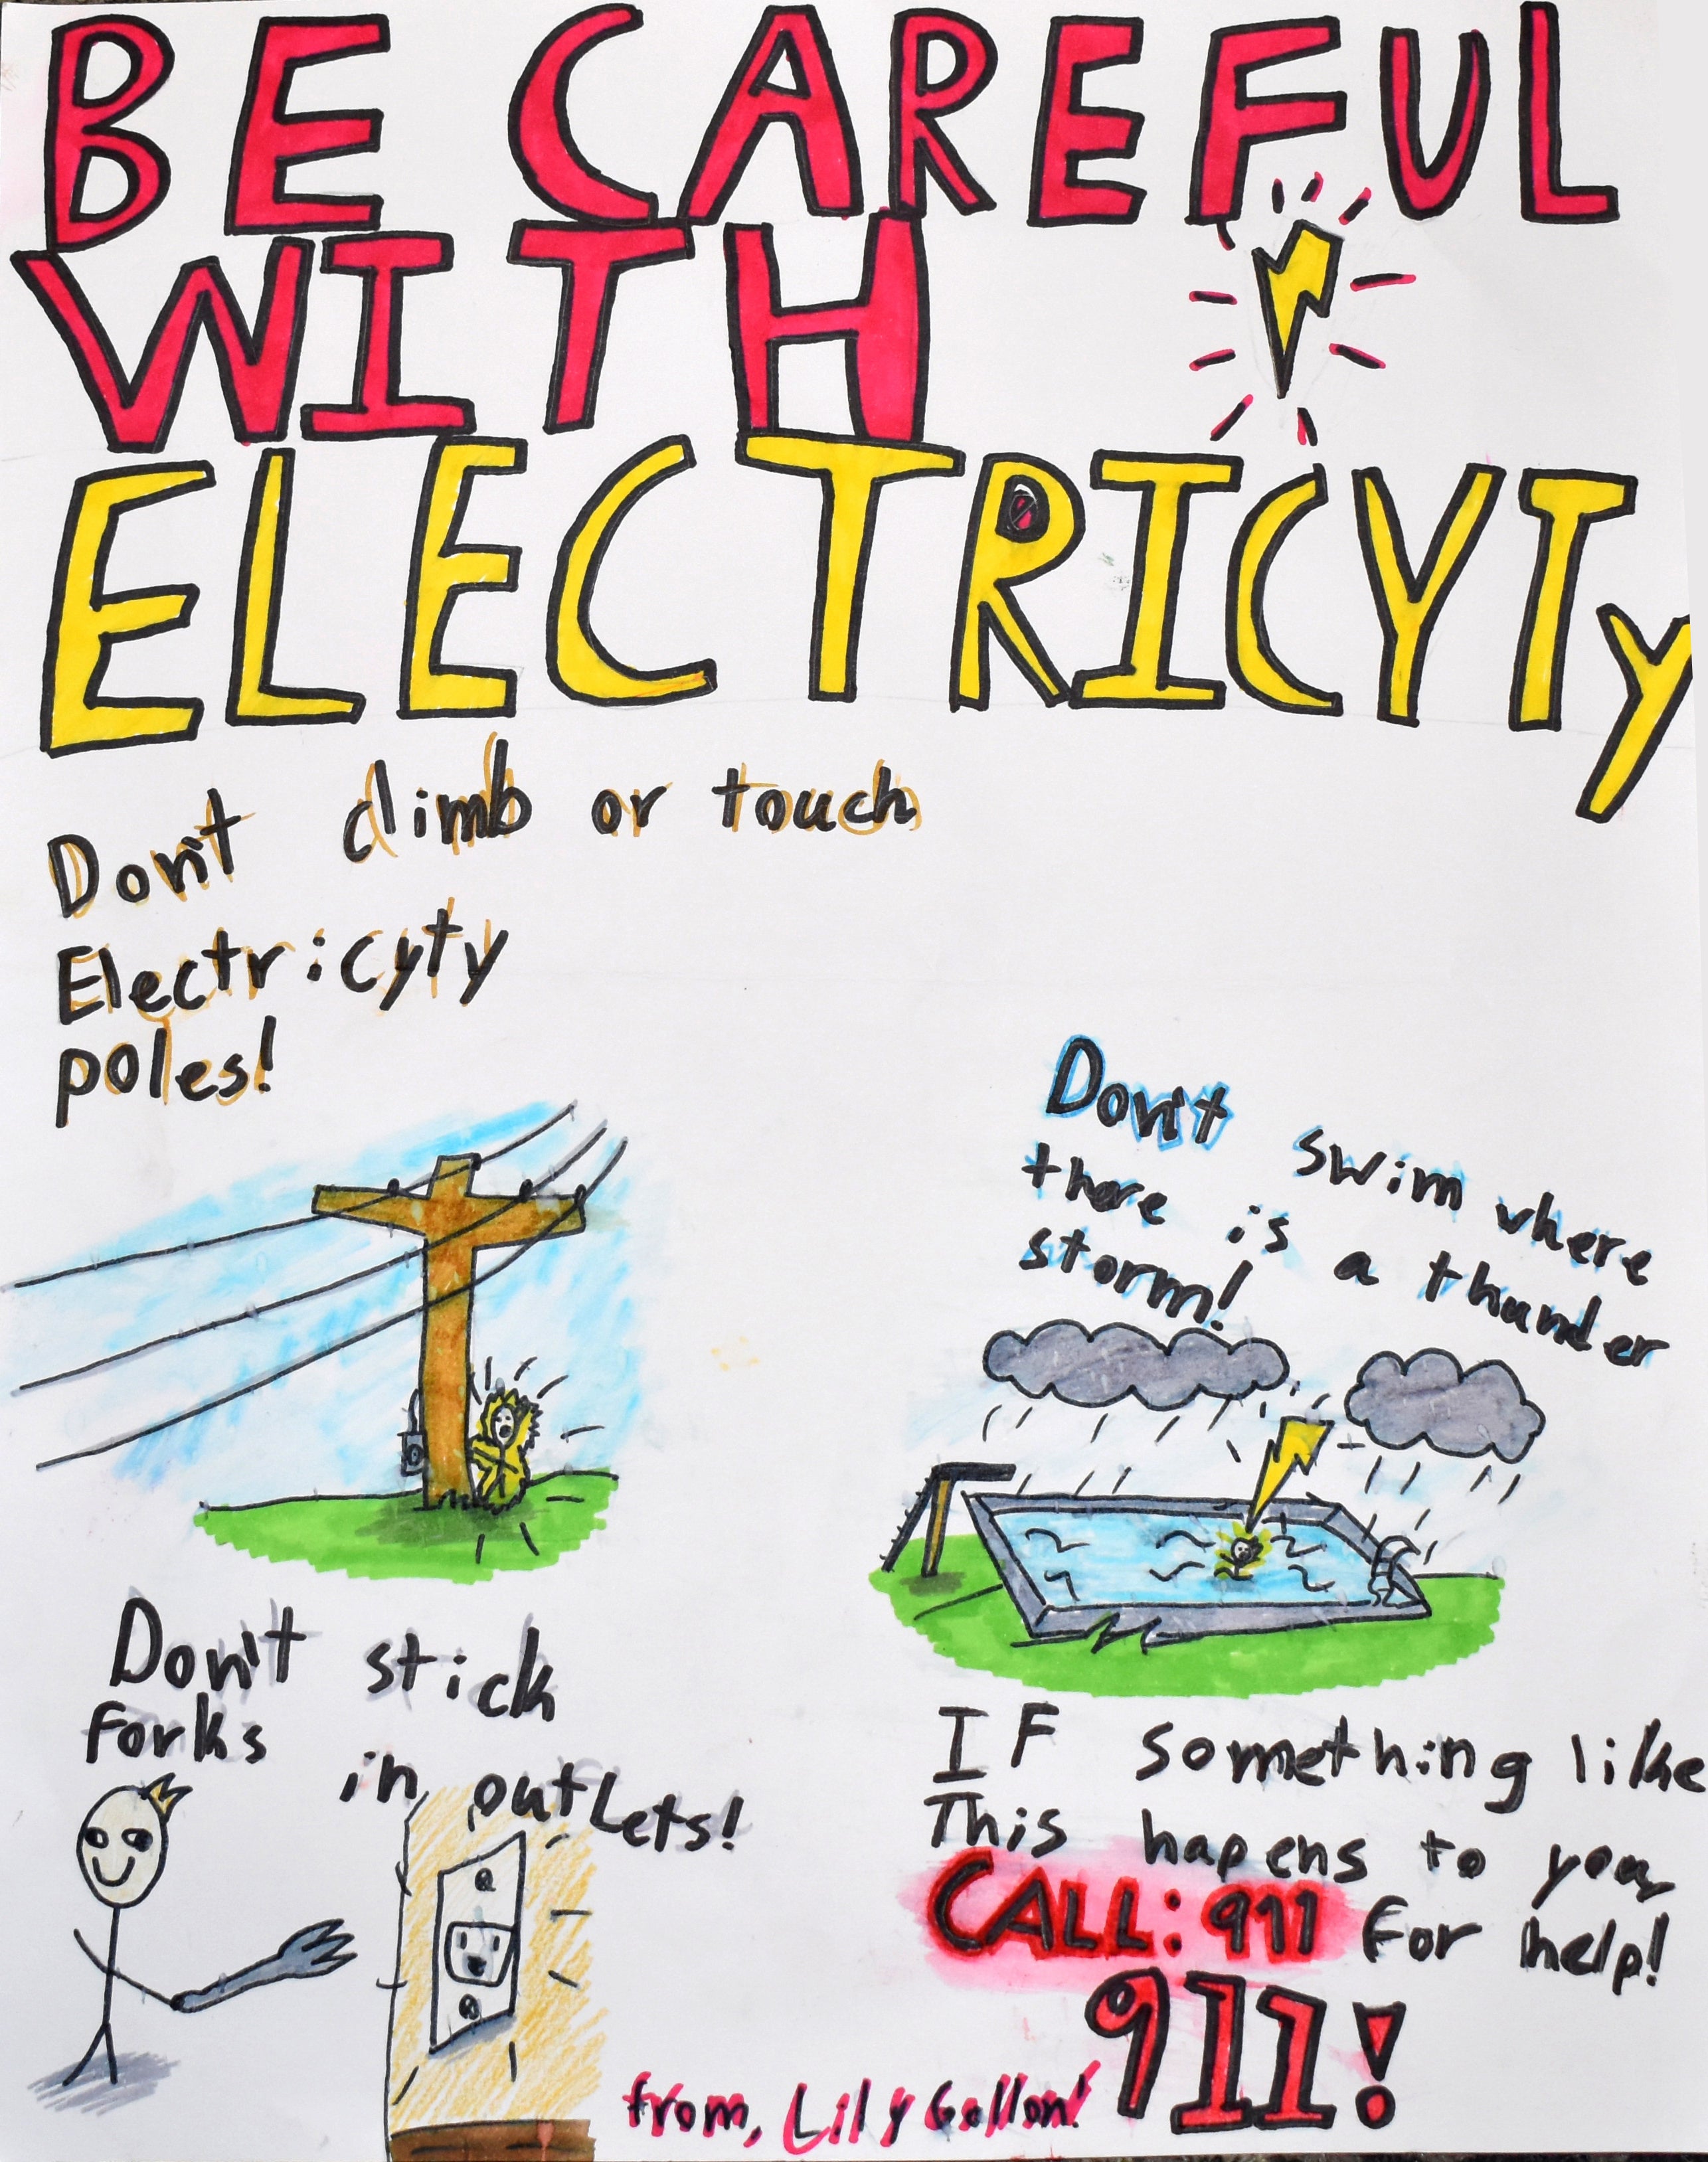 BE CAREFUL
WITH
ELECTRICYTY
Don't climb or touch
Electricyty
poles!
Don't swim where
there is a thunder
storm!
Don't stick
forks
in outlets!
IF something like
This hapens to you
CALL: 911 for help!
911!
from, Lily Gallon!